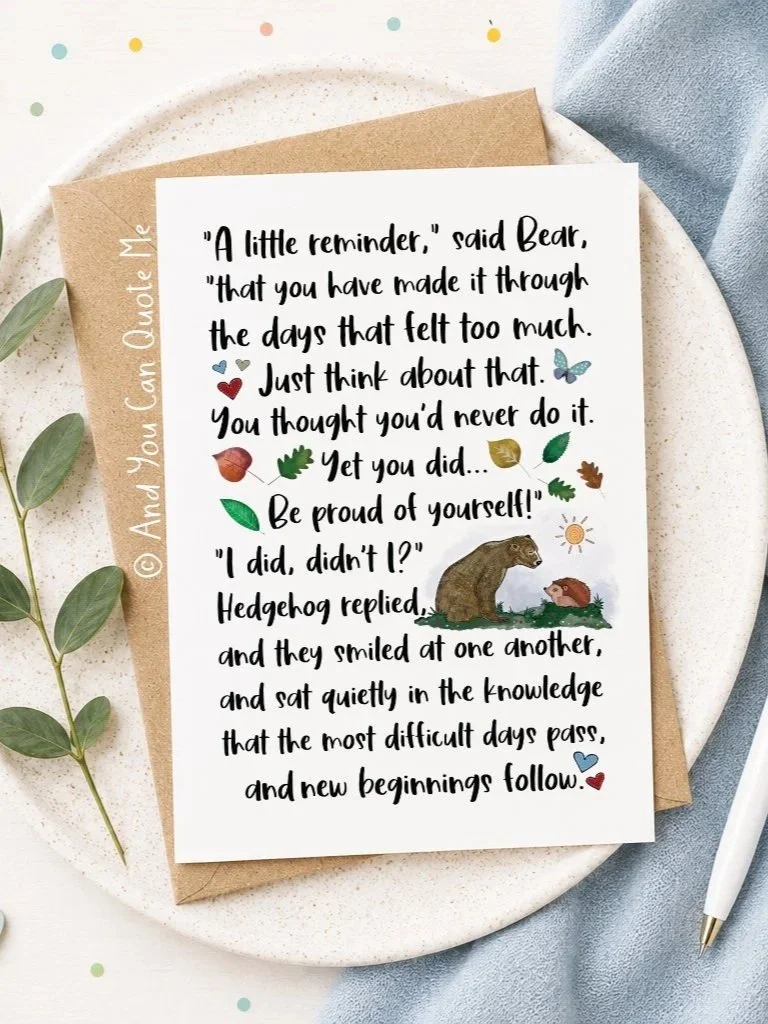 "A little reminder," said Bear,
"that you have made it through
the days that felt too much.
Just think about that.
You thought you'd never do it.
Yet you did...
Be proud of yourself!"
"I did, didn't I?"
Hedgehog replied,
and they smiled at one another,
and sat quietly in the knowledge
that the most difficult days pass,
and new beginnings follow.
© And You Can Quote Me